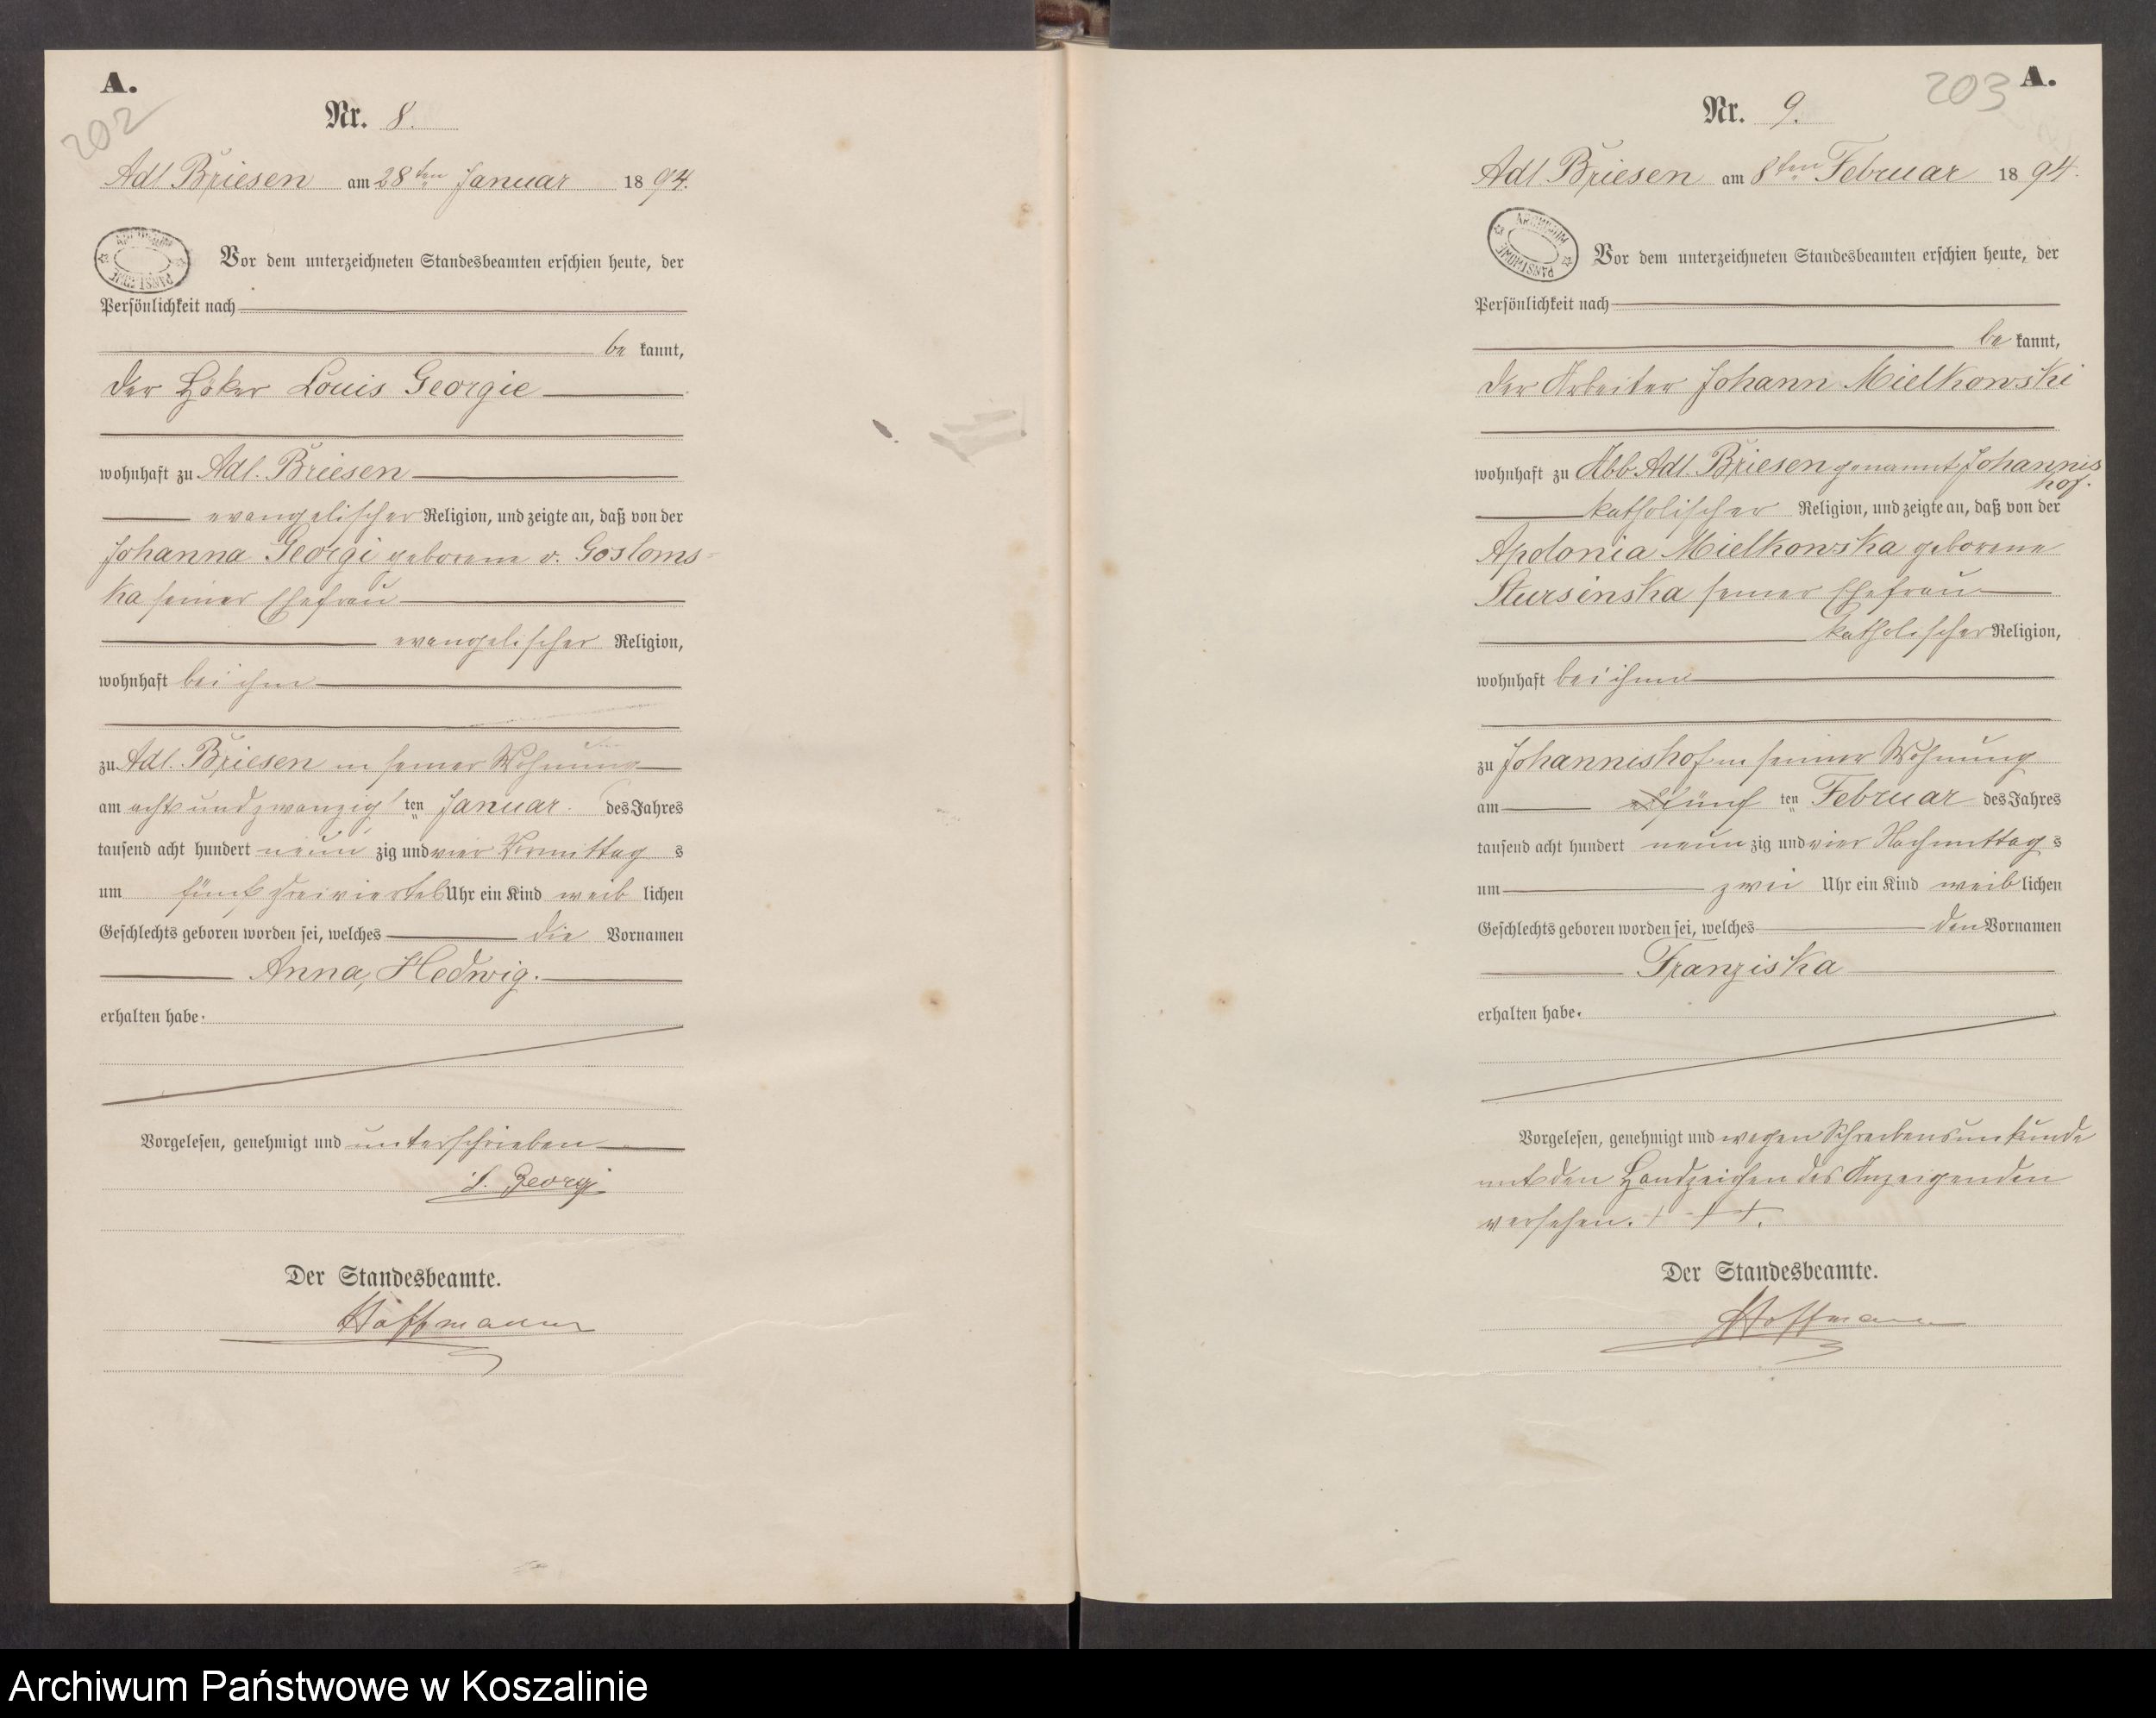 A.
202
Nr. 8.
Adl Briesen am 28ten Januar 1894.
ARCHIWUM PAŃSTWOWE
Vor dem unterzeichneten Standesbeamten erschien heute, der
Persönlichkeit nach
be kannt,
der Höker Louis Georgie
wohnhaft zu Adl. Briesen
evangelischer Religion, und zeigte an, daß von der
Johanna Georgi geborene v. Gosloms-
ka seiner Ehefrau
evangelischer Religion,
wohnhaft bei ihm
zu Adl. Briesen in seiner Wohnung
am acht und zwanzig ten Januar des Jahres
tausend acht hundert neun zig und vier Vormittag s
um fünf dreiviertel Uhr ein Kind weib lichen
Geschlechts geboren worden sei, welches die Vornamen
Anna, Hedwig.
erhalten habe.
Vorgelesen, genehmigt und unterschrieben
L. Georgi
Der Standesbeamte.
Hoffmann
203 A.
Nr. 9.
Adl. Briesen am 8ten Februar 1894.
ARCHIWUM PAŃSTWOWE
Vor dem unterzeichneten Standesbeamten erschien heute, der
Persönlichkeit nach
be kannt,
der Arbeiter Johann Mielkowski
wohnhaft zu Abb. Adl. Briesen genannt Johannis
hof.
katholischer Religion, und zeigte an, daß von der
Apolonia Mielkowska geborene
Stursinska seiner Ehefrau
katholischer Religion,
wohnhaft bei ihm
zu Johannishof in seiner Wohnung
am fünf ten Februar des Jahres
tausend acht hundert neun zig und vier Nachmittag s
um zwei Uhr ein Kind weib lichen
Geschlechts geboren worden sei, welches den Vornamen
Franziska
erhalten habe.
Vorgelesen, genehmigt und wegen Schreibensunkunde
mit den Handzeichen des Anzeigenden
versehen. + + +.
Der Standesbeamte.
Hoffmann
Archiwum Państwowe w Koszalinie